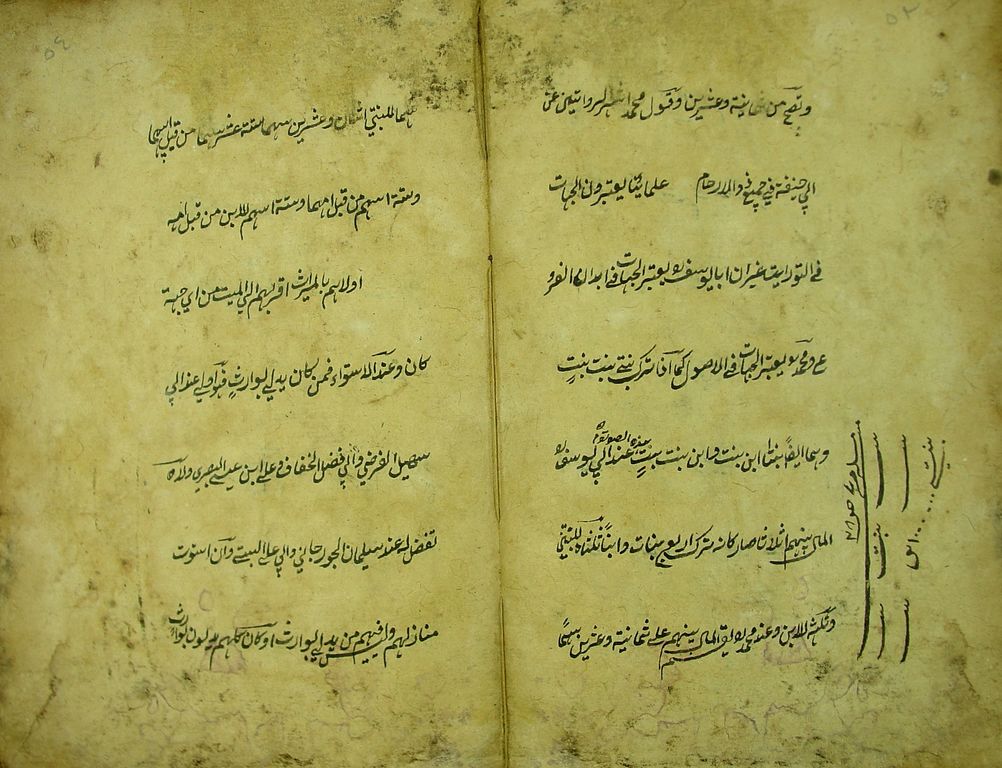 وتصح من ثمانية وعشرين وقول محمد اشهر الروايتين عن
ابي حنيفة في جميع ذوي الارحام علماؤنا يعتبرون الجهات
في التوريث غير ان ابا يوسف ره يعتبر الجهات في ابدان الفرو
ع ومحمد ره يعتبر الجهات في الاصول كما اذا ترك بنتي بنت بنت
وهما ايضا بنتا ابن بنت وابن بنت بنت بهذه الصورة عند ابي يوسف ره
المال بينهم اثلاثا صار كانه ترك اربع بنات وابنا ثلثاه للبنتين
وثلثه للابن وعند محمد ره يقسم المال بينهم على ثمانية وعشرين سهما
للبنتين اثنان وعشرين سهما ستة عشر سهما من قبل ابيهما
وستة اسهم من قبل امهما وستة اسهم للابن من قبل امه
اولاهم بالميراث اقربهم الي الميت من اي جهة
كان وعند الاستواء فمن كان يدلي بوارث فهو اولي عند ابي
سهيل الفرضي وابي فضل الخفاف وعلي ابن عيسي البصري ولا
تفضل له عند سليمان الجورجاني وابي علي البستي وان استوت
منازلهم وليس فيهم من يدلي بوارث او كان كلهم يدلون بوارث
بنت
بنت